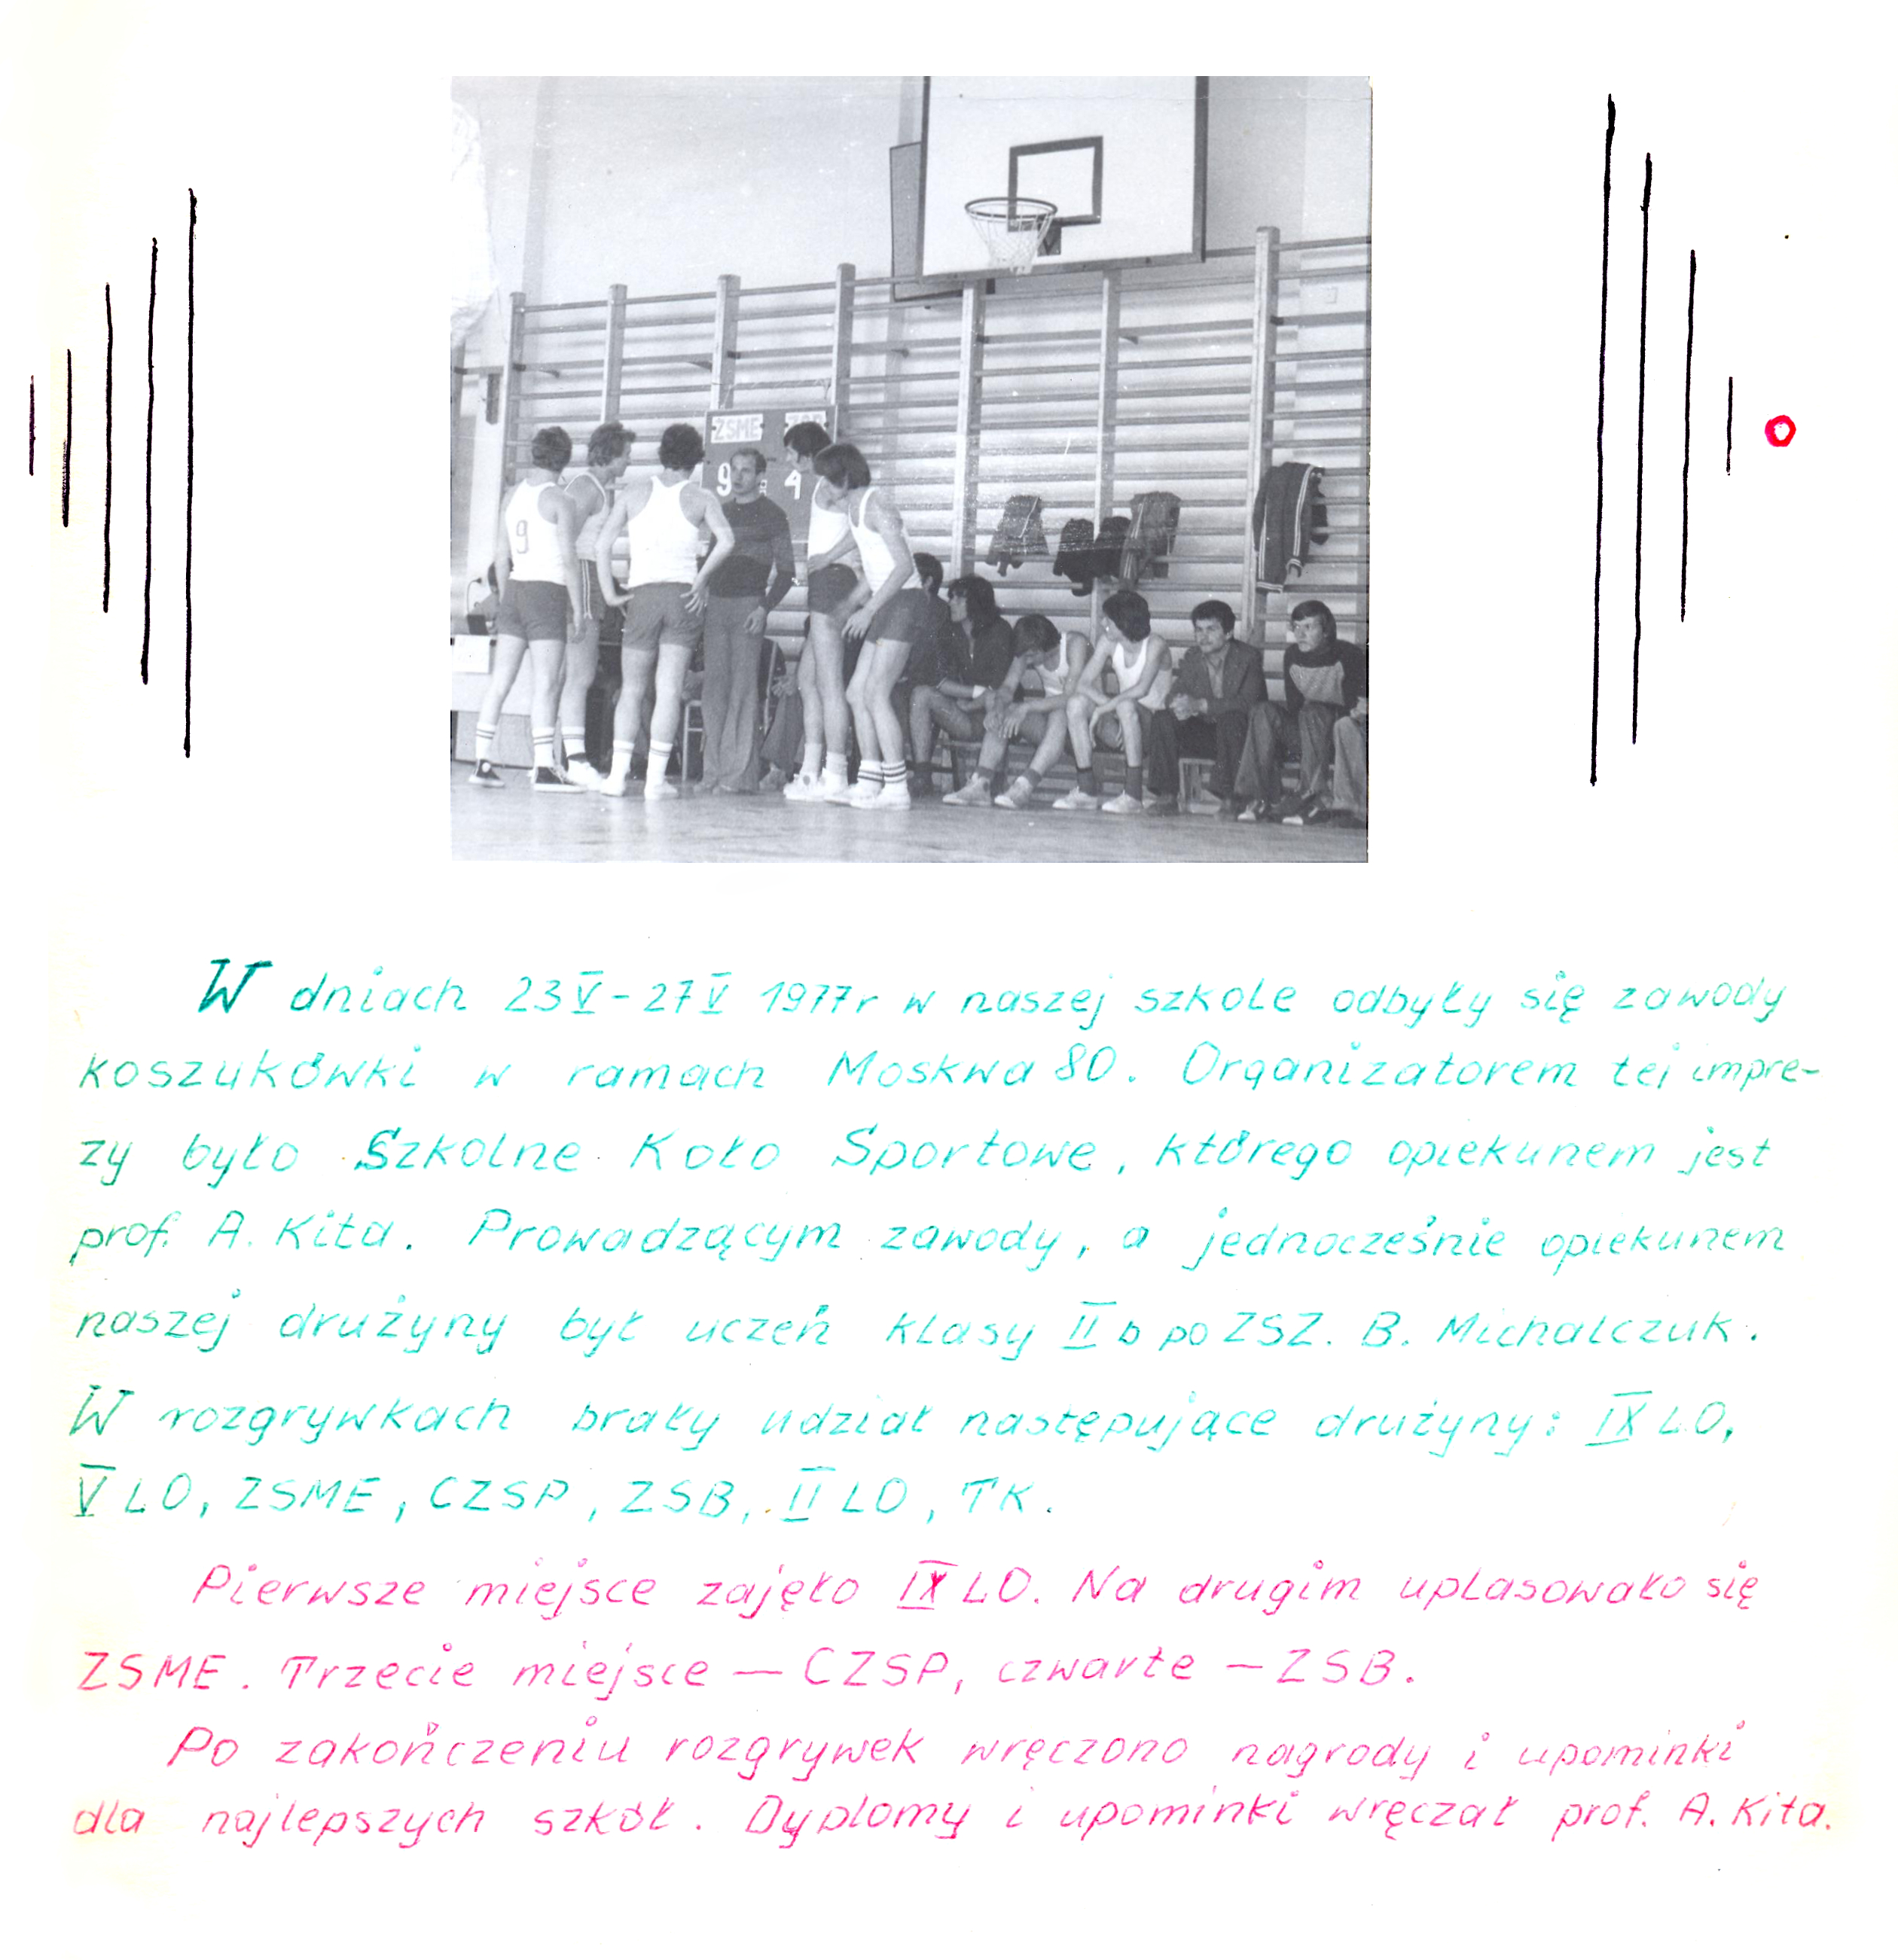 ZSME
9
4
9
W dniach 23 V - 27 V 1977r w naszej szkole odbyły się zawody
koszukówki w ramach Moskwa 80. Organizatorem tej impre-
zy było Szkolne Koło Sportowe, którego opiekunem jest
prof. A. Kita. Prowadzącym zawody, a jednocześnie opiekunem
naszej drużyny był uczeń klasy II b po ZSZ. B. Michalczuk.
W rozgrywkach brały udział następujące drużyny: IX LO,
V LO, ZSME, CZSP, ZSB, II LO, TK.
Pierwsze miejsce zajęło IX LO. Na drugim uplasowało się
ZSME. Trzecie miejsce — CZSP, czwarte — ZSB.
Po zakończeniu rozgrywek wręczono nagrody i upominki
dla najlepszych szkół. Dyplomy i upominki wręczał prof. A. Kita.